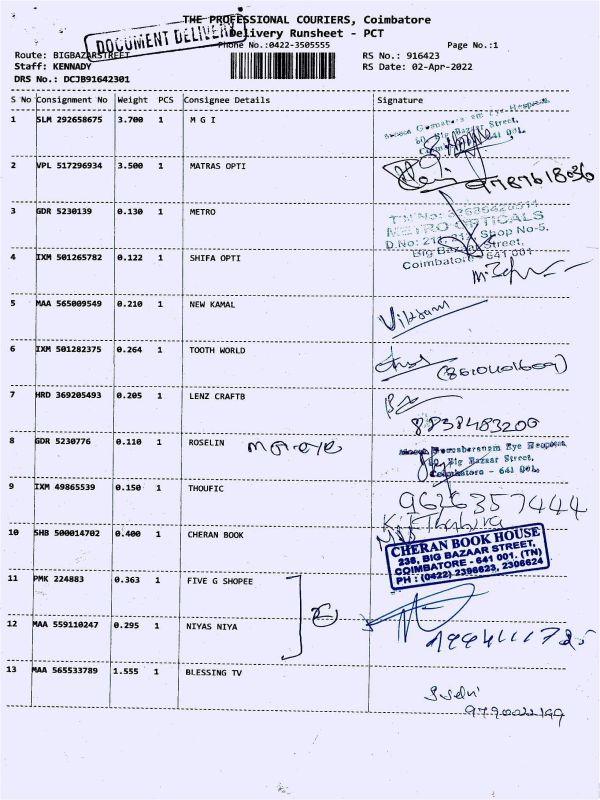 THE PROFESSIONAL COURIERS, Coimbatore
DOCUMENT DELIVERY
Delivery Runsheet - PCT
Phone No.:0422-3505555
Page No.:1
Route: BIGBAZARSTREET
RS No.: 916423
Staff: KENNADY
RS Date: 02-Apr-2022
DRS No.: DCJB91642301
S No Consignment No Weight PCS Consignee Details Signature
1 SLM 292658675 3.700 1 M G I
Eye Hospital
60, Big Bazaar Street,
2 VPL 517296934 3.500 1 MATRAS OPTI
9787618036
3 GDR 5230139 0.130 1 METRO
METRO OPTICALS
D.No: 211, 212, Shop No-5,
Big Bazaar Street,
Coimbatore - 641 001
4 IXM 501265782 0.122 1 SHIFA OPTI
5 MAA 565009549 0.210 1 NEW KAMAL
Vikram
6 IXM 501282375 0.264 1 TOOTH WORLD
(8610401609)
7 HRD 369205493 0.205 1 LENZ CRAFTB
8838483200
8 GDR 5230776 0.110 1 ROSELIN
Eye Hospital
60, Big Bazaar Street,
Coimbatore - 641 001.
9 IXM 49865539 0.150 1 THOUFIC
9626357444
10 SHB 500014702 0.400 1 CHERAN BOOK
CHERAN BOOK HOUSE
236, BIG BAZAAR STREET,
COIMBATORE - 641 001. (TN)
PH : (0422) 2396623, 2306624
11 PMK 224883 0.363 1 FIVE G SHOPEE
12 MAA 559110247 0.295 1 NIYAS NIYA
13 MAA 565533789 1.555 1 BLESSING TV